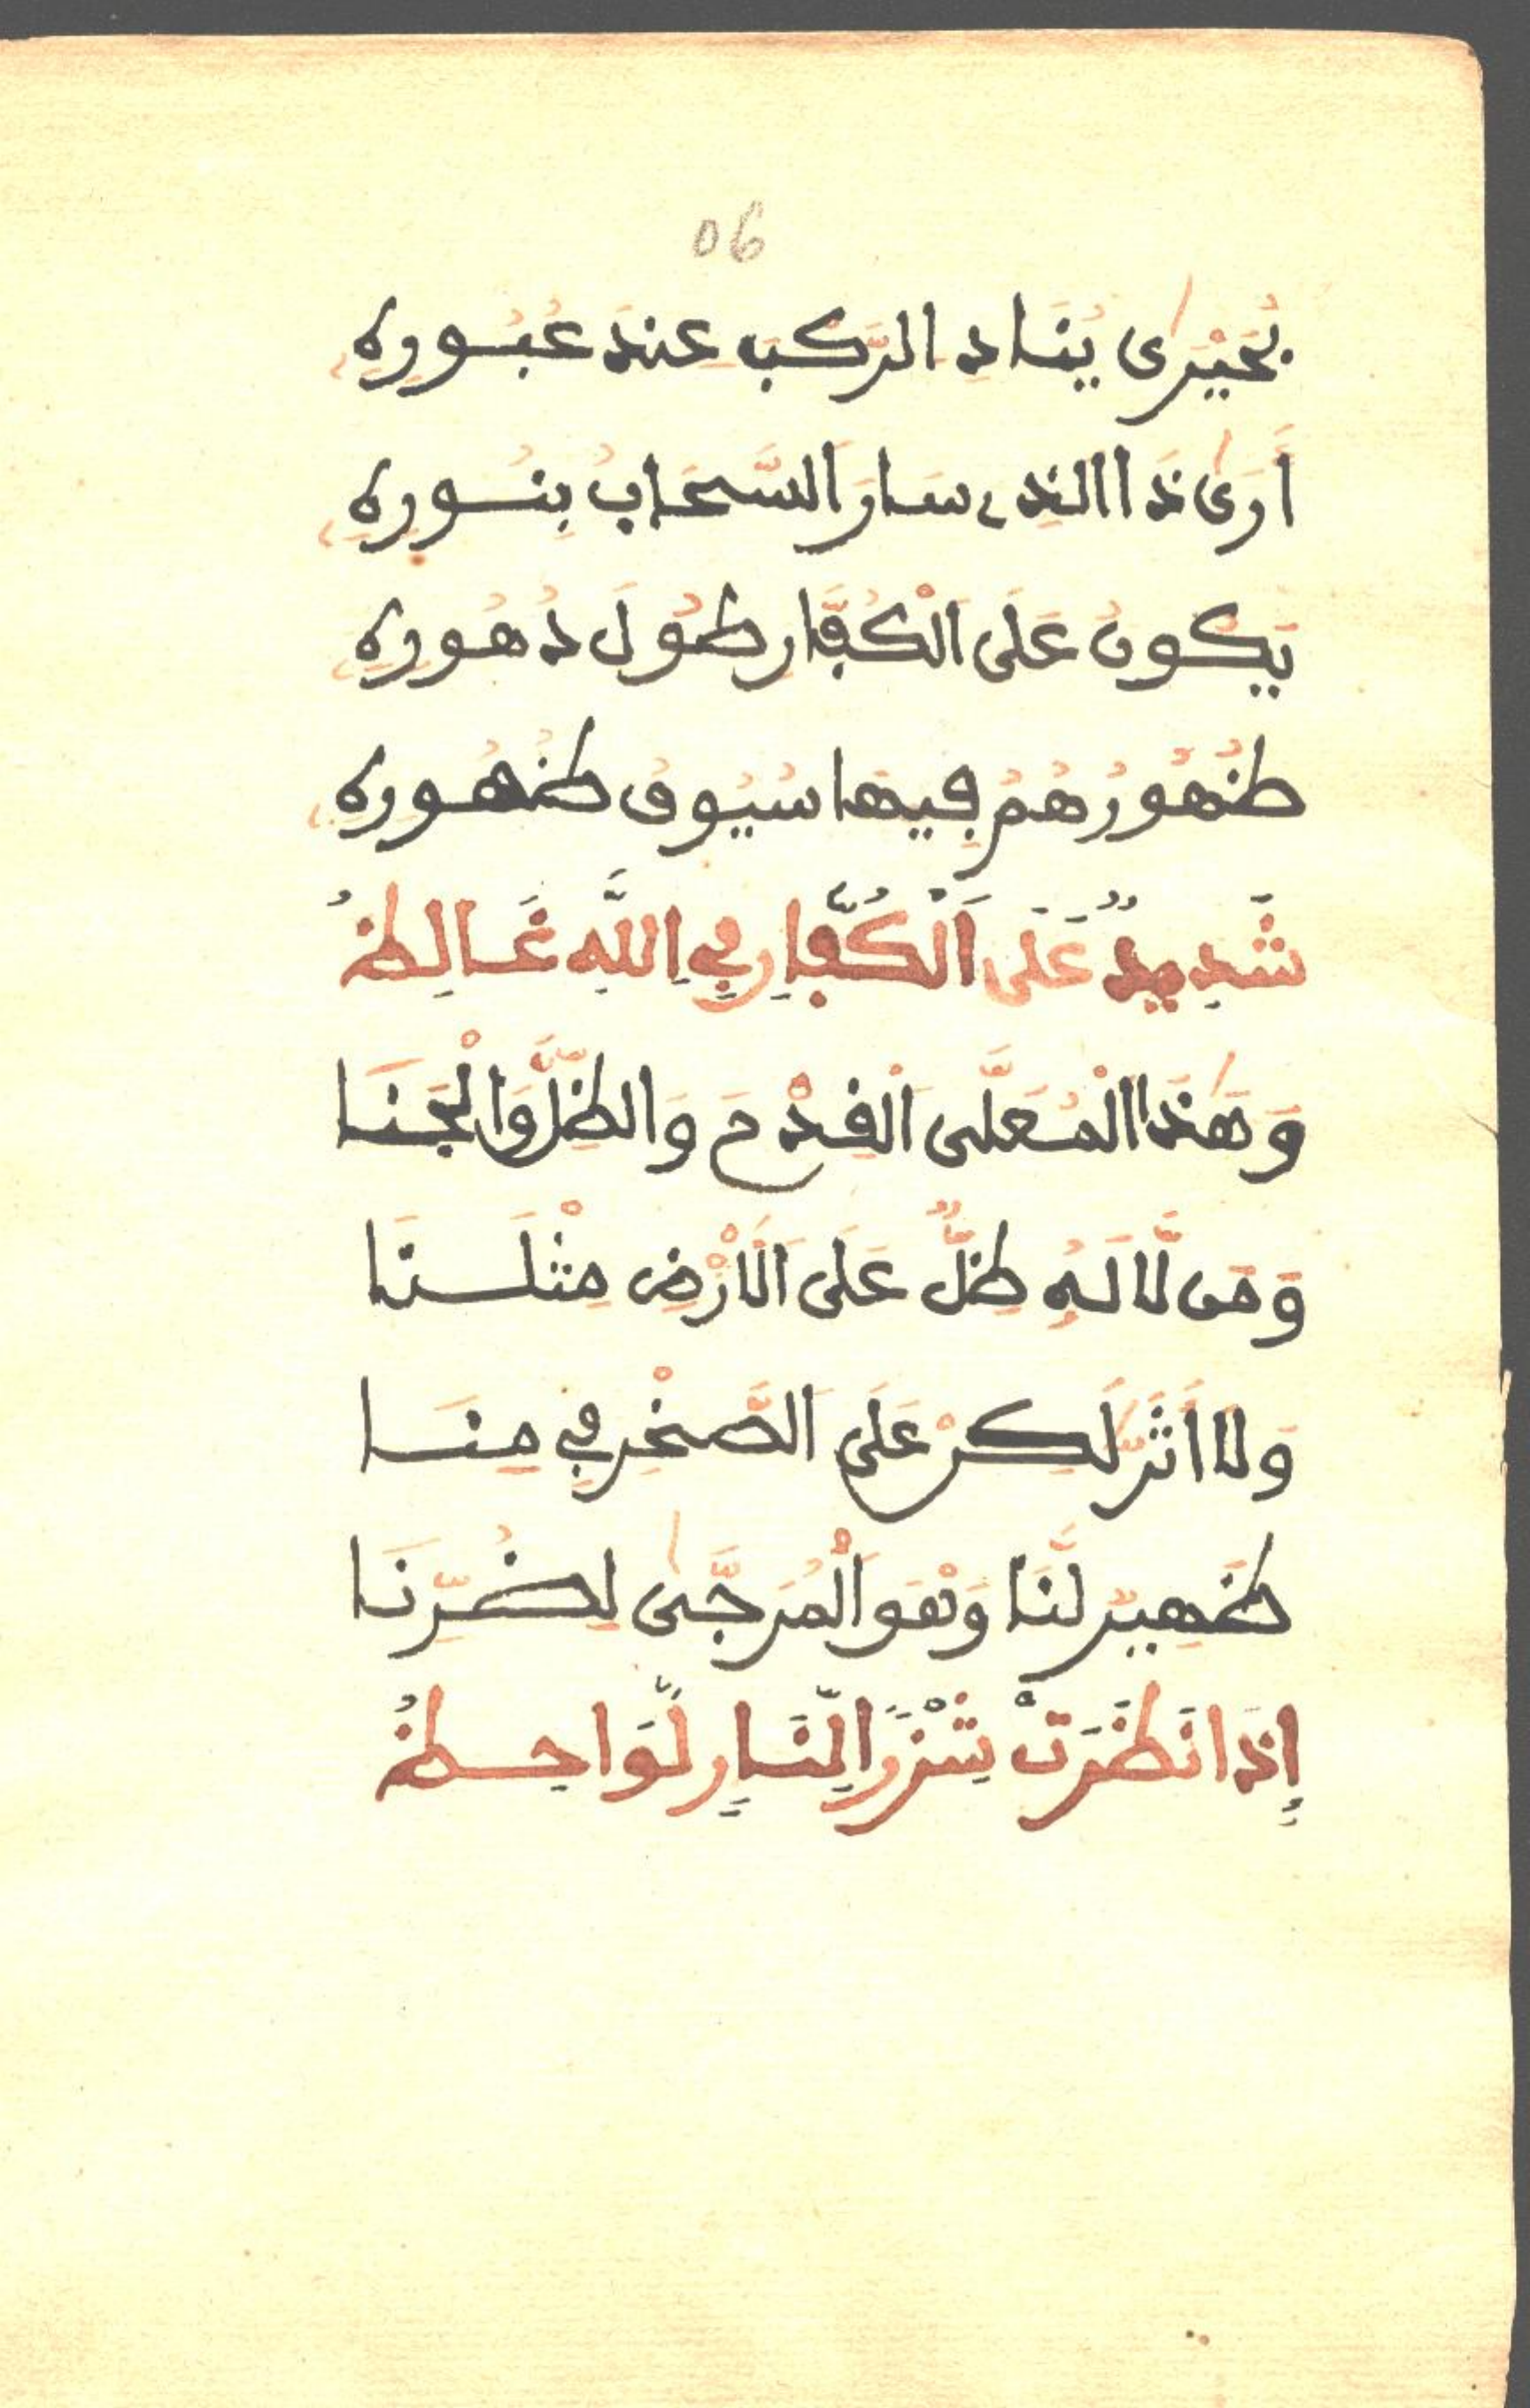 06
بُحَيْرَىٰ يُنَادِ الرَّكْبَ عِندَ عُبُورِهِ
أَرَىٰ ذَا الَّذِي سَارَ السَّحَابُ بِنُورِهِ
يَكُونُ عَلَى الْكُفَّارِ طُولَ دُهُورِهِ
ظُهُورُهُمُ فِيهَا سُيُوفُ ظُهُورِهِ
شَدِيدٌ عَلَى الْكُفَّارِ فِي اللَّهِ غَالِظُ
وَهَٰذَا الْمُعَلَّى الْفِدْمَ وَالظِّلَّ وَالْجَنَا
وَمَن لَّا لَهُ ظِلٌّ عَلَى الْأَرْضِ مِثْلَنَا
وَلَا أَثَرٌ لَّكِنْ عَلَى الصَّخْرِ فِي مِنَا
ظَهِيرٌ لَّنَا وَهْوَ الْمُرَجَّىٰ لِضُرِّنَا
إِذَا نَظَرَتْ شَزْرًا لِّنَارٍ لَّوَاحِظُ